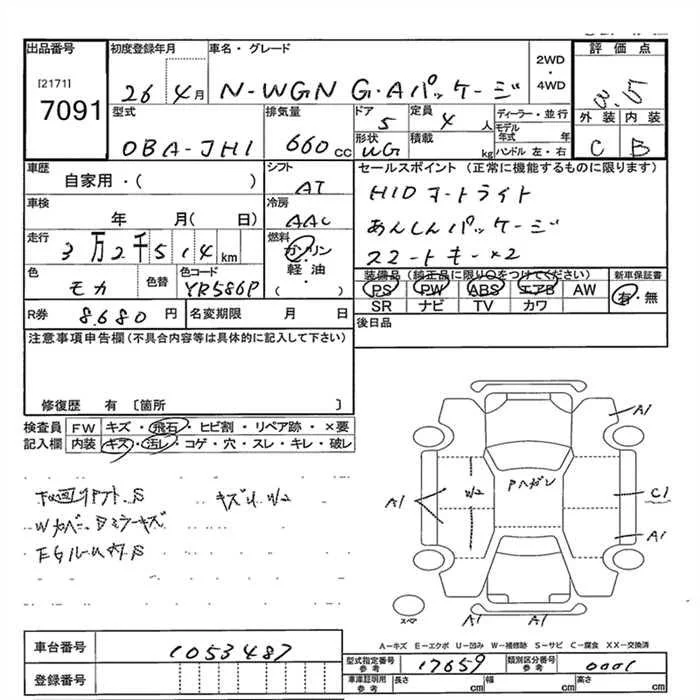 出品番号
[2171]
7091
初度登録年月
26 4月
車名・グレード
N-WGN G・Aパッケージ
2WD・4WD
評価点
3.5
外装 内装
C B
型式
DBA-JH1
排気量
660cc
ドア
5
形状
WG
定員
4人
積載
kg
ディーラー・並行
モデル年式 年
ハンドル 左・右
車歴
自家用・( )
シフト
AT
セールスポイント(正常に機能するものに限ります)
HID オートライト
あんしんパッケージ
スマートキー×2
車検
年 月( 日)
冷房
AAC
走行
3万2千514km
燃料
ガソリン・軽油・( )
色
モカ
色替
色コード
YR586P
装備品(純正品に限り○をつけてください)
PS PW ABS エアB AW
SR ナビ TV カワ
新車保証書
有・無
R券 8.680円
名変期限 月 日
後日品
注意事項申告欄(不具合内容等は具体的に記入して下さい)
修復歴 有 〔箇所 〕
検査員記入欄
FW キズ・飛石・ヒビ割・リペア跡・×要
内装 キズ・汚レ・コゲ・穴・スレ・キレ・破レ
A1
A1
W2
Pハガレ
C1
A1
スペア
A1
A1
A-キズ E-エクボ U-凹み W-補修跡 S-サビ C-腐食 XX-交換済
車台番号 1053487
登録番号
型式指定番号 参考 17659
類別区分番号 参考 0001
車庫証明用 参考 長さ cm 幅 cm 高さ cm